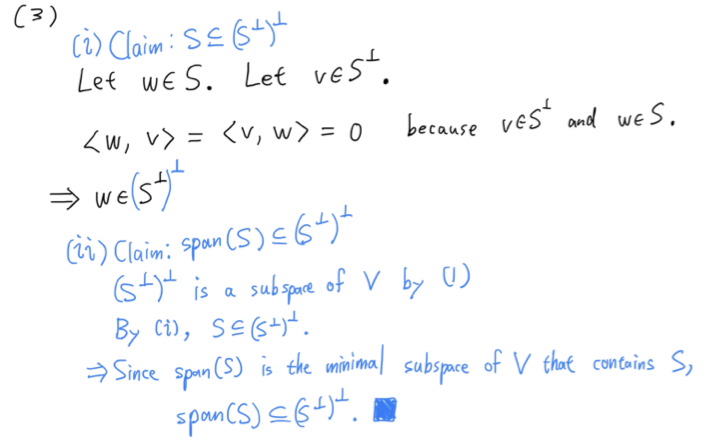 (3)
(i) Claim: S ⊆ (S^⊥)^⊥
Let w ∈ S. Let v ∈ S^⊥.
⟨w, v⟩ = ⟨v, w⟩ = 0 because v ∈ S^⊥ and w ∈ S.
⇒ w ∈ (S^⊥)^⊥
(ii) Claim: span(S) ⊆ (S^⊥)^⊥
(S^⊥)^⊥ is a subspace of V by (1)
By (i), S ⊆ (S^⊥)^⊥.
⇒ Since span(S) is the minimal subspace of V that contains S,
span(S) ⊆ (S^⊥)^⊥. ■